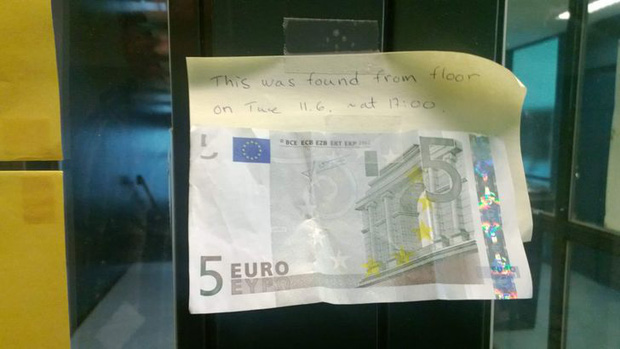 This was found from floor
on Tue 11.6. ~at 17:00.
BCE ECB EZB EKT EKP
5
5 EURO
ΕΥΡΩ